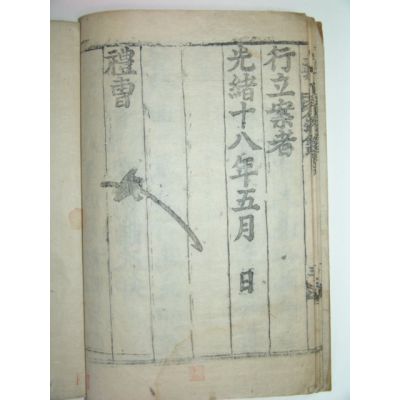 行立案者
光緖十八年五月 日
禮曹